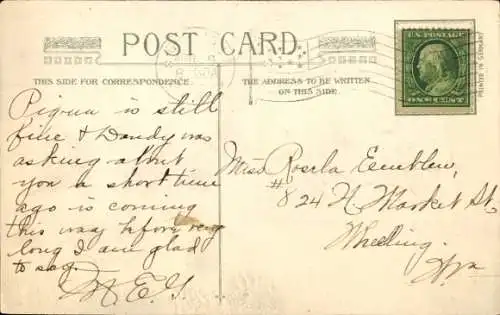 POST CARD.
THIS SIDE FOR CORRESPONDENCE.
THE ADDRESS TO BE WRITTEN
ON THIS SIDE.
U.S. POSTAGE
ONE CENT
PRINTED IN GERMANY
Piqua is still
fine & Dandy was
asking about
you a short time
ago is coming
this way before very
long I am glad
to say.
Miss Rosella
#824 N. Market St.
Wheeling.
W va